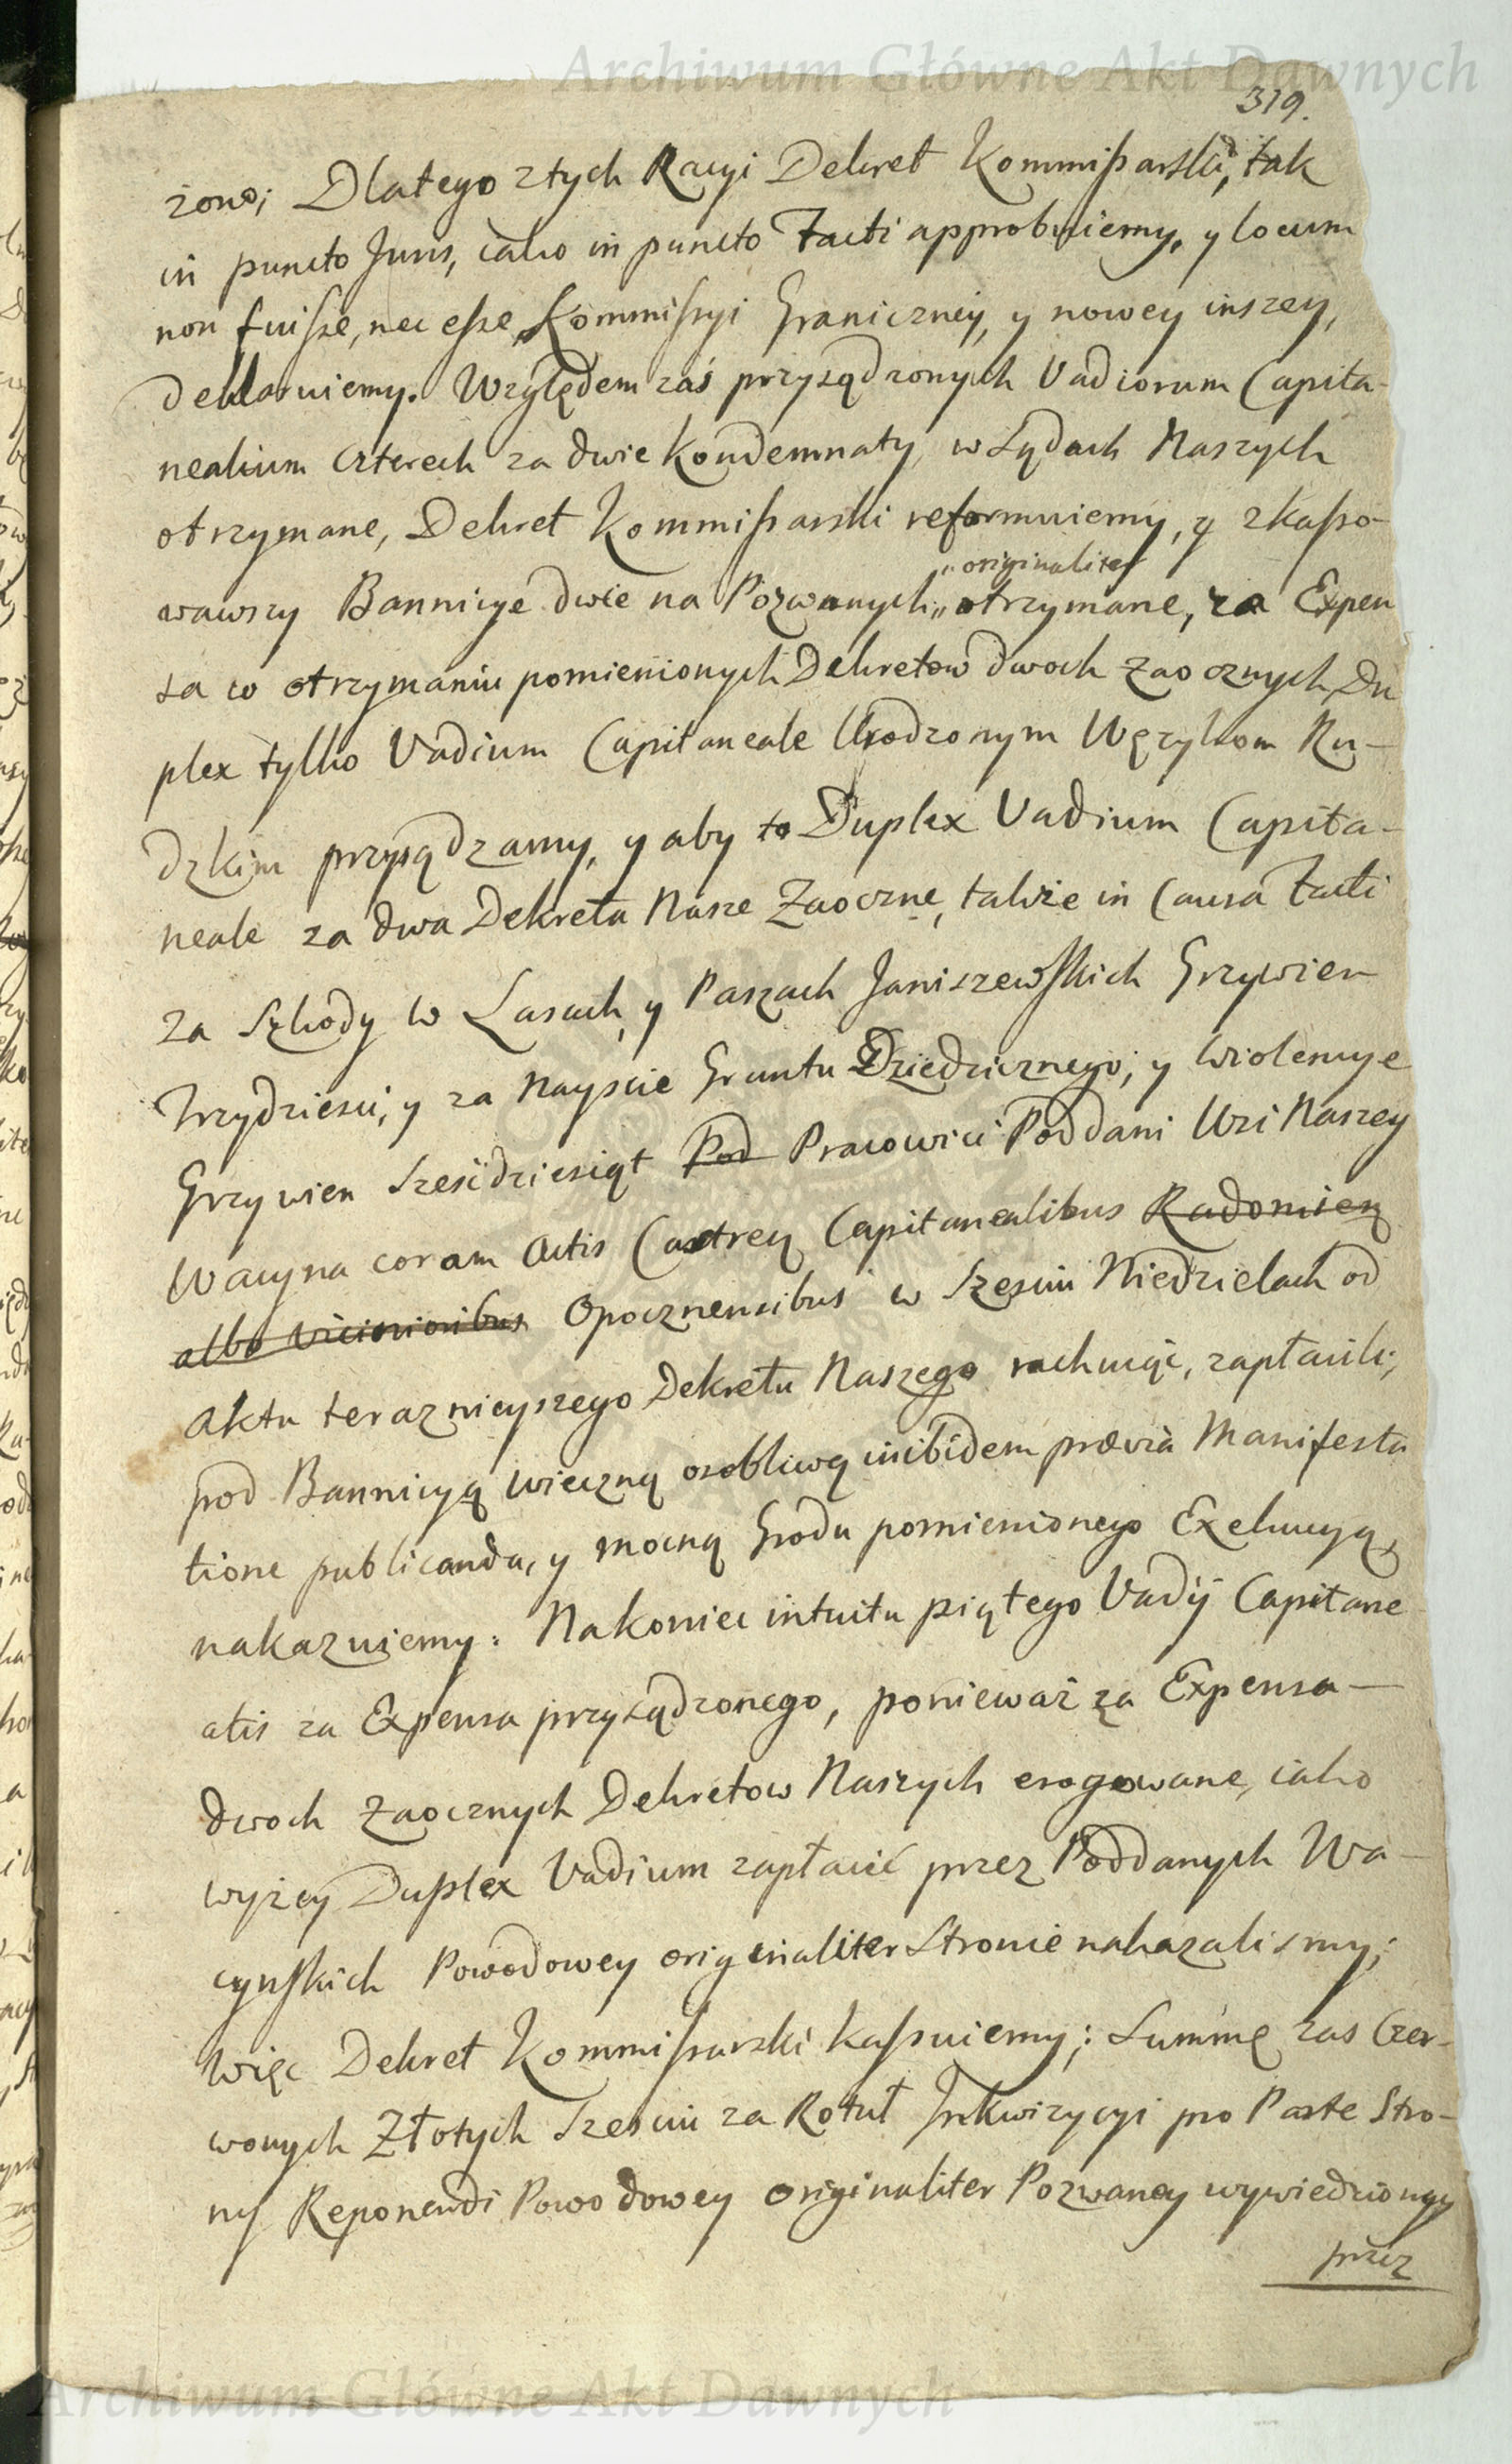 Archiwum Główne Akt Dawnych
319.
żono; Dlatego z tych Racyi Dekret Kommißarski, tak
in puncto Juris, iako in puncto Facti approbuiemy, y locum
non fuiße, nec eße, Kommißyi Graniczney, y nowey inszey,
deklaruiemy. Względem zaś przysądzonych Vadiorum Capita-
nealium czterech za dwie Kondemnaty, w Sądach Naszych
otrzymane, Dekret Kommißarski reformuiemy, y zkaßo-
wawszy Bannicye dwie na Pozwanych „originaliter„ otrzymane, za Expen
sa w otrzymaniu pomienionych Dekretow dwoch Zaocznych, Du
plex tylko Vadium Capitaneale Urodzonym Wężykom Ru-
dzkim przysądzamy, y aby to Duplex Vadium Capita-
neale za dwa Dekreta Nasze Zaoczne, także in Causa Facti
za Szkody w Lasach, y Paszach Janiszewskich Grzywien
Trzydziesci, y za Nayscie Gruntu Dziedzicznego, y Wiolencye
Grzywien Szescdziesiąt Pod Pracowici Poddani Wsi Naszey
Wacyna coram Actis Castren Capitanealibus Radomien
albo vicinioribus Opocznensibus w Szesciu Niedzielach od
aktu teraznieyszego Dekretu Naszego rachuiąc, zapłacili;
pod Bannicyą wieczną osobliwą inibidem prævia Manifesta
tione publicanda, y mocną Grodu pomienionego Exekucyą,
nakazuiemy: Nakoniec intuitu piątego Vadij Capitane
alis za Expensa przysądzonego, ponieważ za Expensa
dwoch Zaocznych Dekretow Naszych erogowane, iako
wyżey Duplex Vadium zapłacić przez Poddanych Wa-
cynskich Powodowey originaliter Stronie nakazalismy;
więc Dekret Kommißarski kaßuiemy; Summę zas Czer-
wonych Złotych Szesciu za Rotuł Inkwizycyi pro Parte Stro-
ny Reponendi Powodowey originaliter Pozwaney wywiedzioney
przez
Archiwum Główne Akt Dawnych